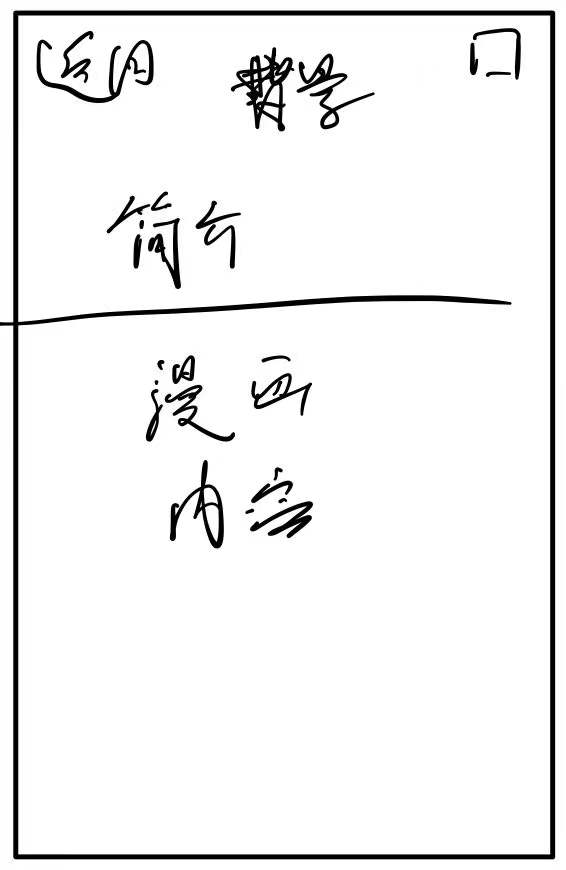 返回 学
简介
漫画
内容